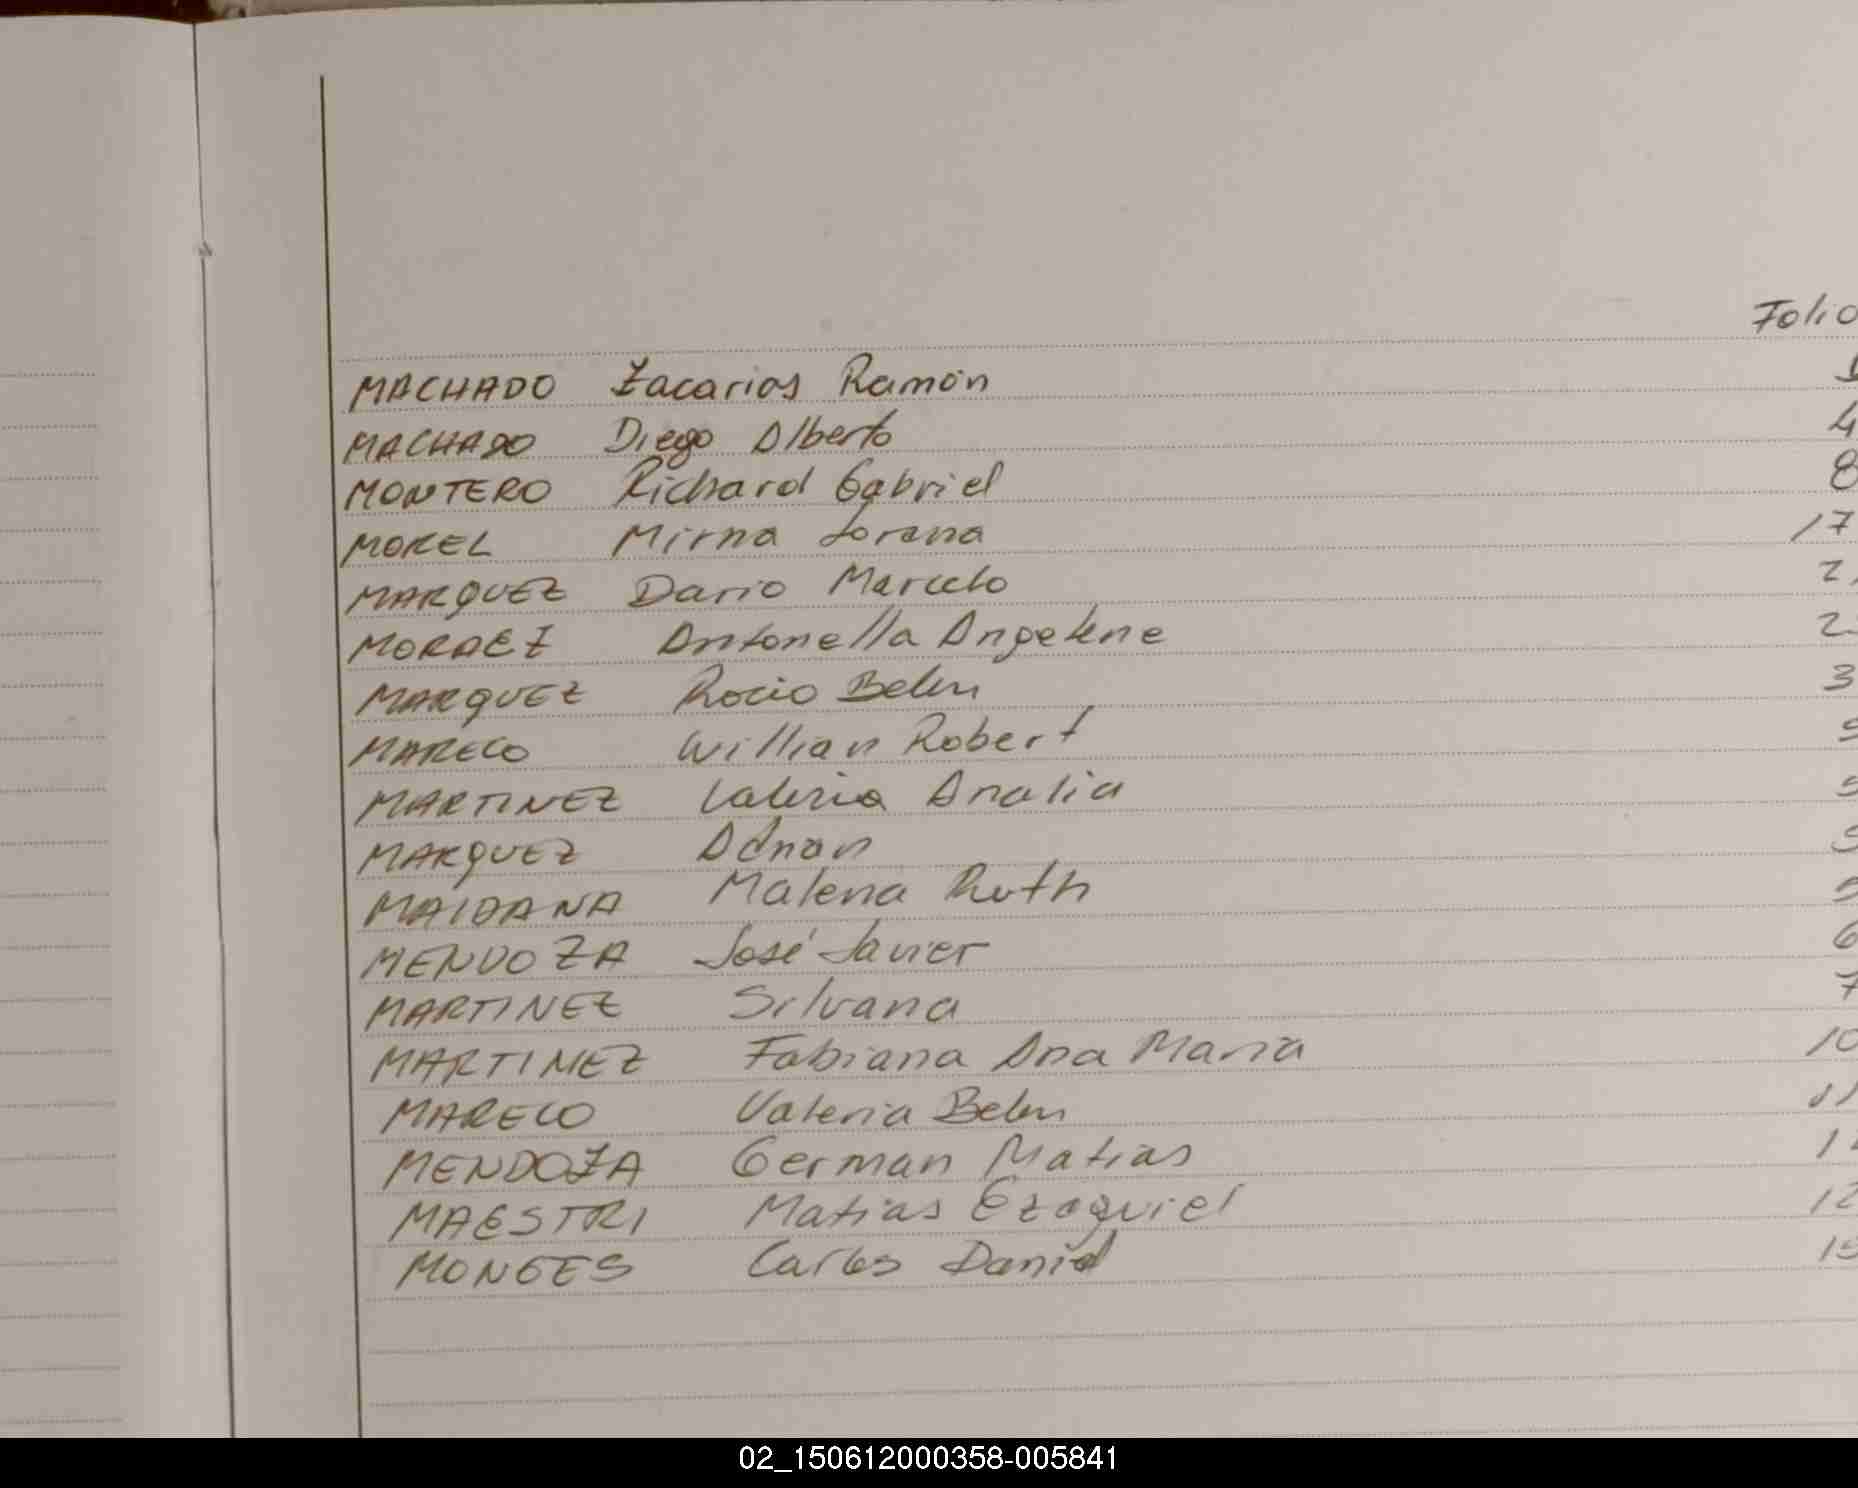 Folio
MACHADO Zacarias Ramón 1
MACHADO Diego Alberto 4
MONTERO Richard Gabriel 8
MOREL Mirna Lorena 17
MARQUEZ Dario Marcelo 2
MORAEZ Antonella Angelene 2
MARQUEZ Rocio Belen 3
MARECO Willian Robert 5
MARTINEZ Valeria Analia 5
MARQUEZ Adrian 5
MAIDANA Malena Ruth 5
MENDOZA José Javier 6
MARTINEZ Silvana 7
MARTINEZ Fabiana Ana Maria 10
MARECO Valeria Belen 11
MENDOZA German Matias 1
MAESTRI Matias Ezequiel 12
MONGES Carlos Daniel 15
02_150612000358-005841